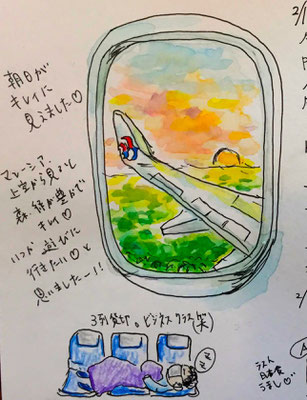 朝日が
キレイに
見えました♡
マレーシア
上空から見ても
森、緑が豊かで
キレイ♡
いつか遊びに
行きたい♡と
思いましたー!!
3列貸切。ビジネスクラス(笑)
z
z
z
ラスト
日本食
うまし♡
2/1
2/